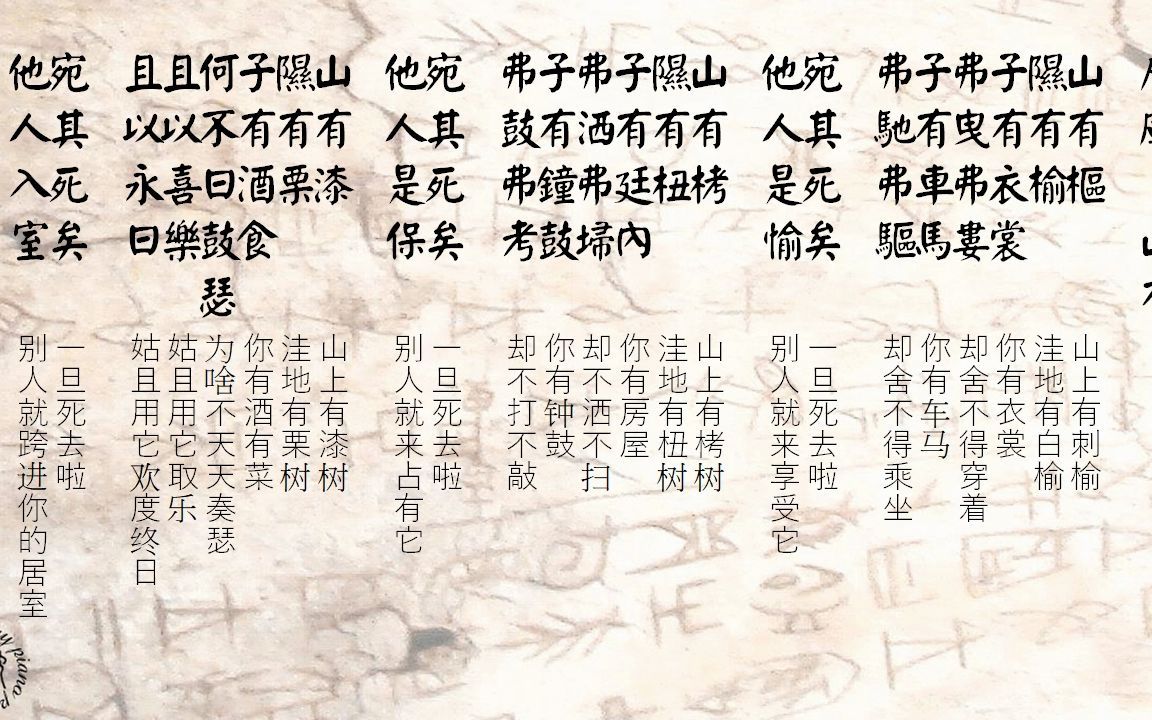 山有樞
隰有榆
子有衣裳
弗曳弗婁
子有車馬
弗馳弗驅
宛其死矣
他人是愉
山有栲
隰有杻
子有廷內
弗洒弗埽
子有鐘鼓
弗鼓弗考
宛其死矣
他人是保
山有漆
隰有栗
子有酒食
何不日鼓瑟
且以喜樂
且以永日
宛其死矣
他人入室
山上有刺榆
洼地有白榆
你有衣裳
却舍不得穿着
你有车马
却舍不得乘坐
一旦死去啦
别人就来享受它
山上有栲树
洼地有杻树
你有房屋
却不洒不扫
你有钟鼓
却不打不敲
一旦死去啦
别人就来占有它
山上有漆树
洼地有栗树
你有酒有菜
为啥不天天奏瑟
姑且用它取乐
姑且用它欢度终日
一旦死去啦
别人就跨进你的居室
piano